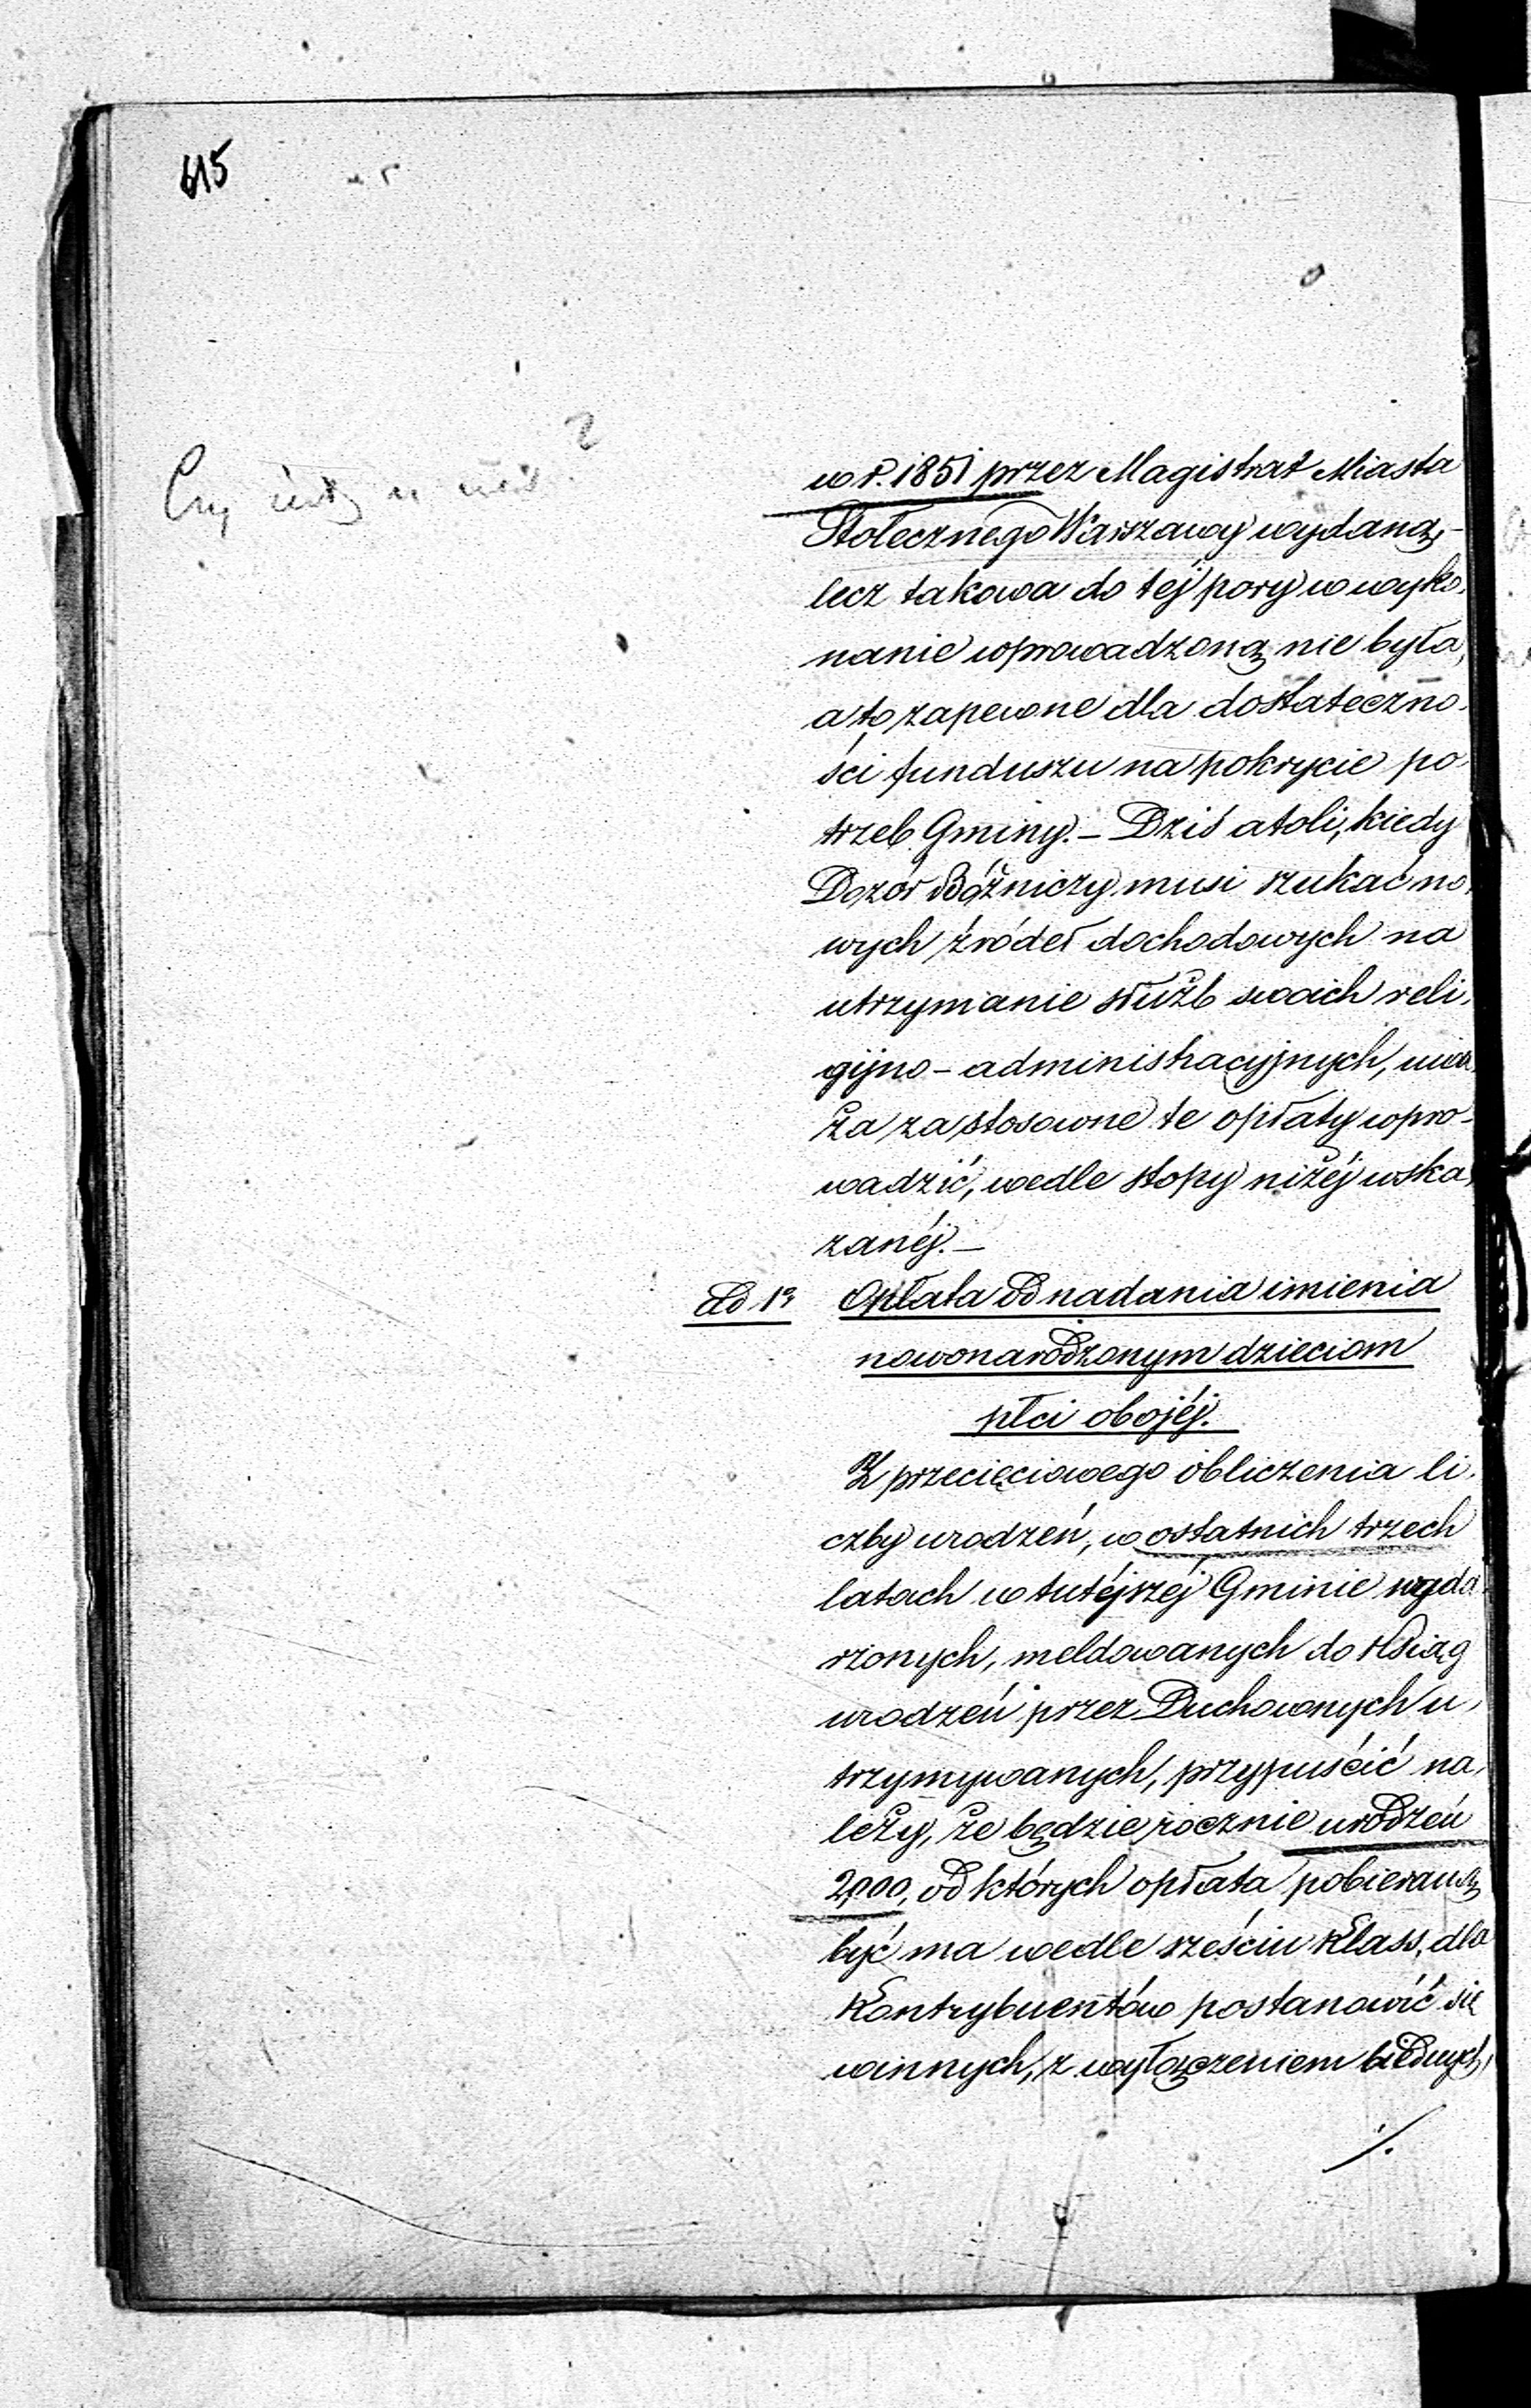 615
w r. 1851 przez Magistrat Miasta
Stołecznego Warszawy wydaną, -
lecz takowa do tej pory w wyko-
nanie wprowadzoną nie była,
a to zapewne dla dostateczno-
ści funduszu na pokrycie po-
trzeb Gminy. - Dziś atoli, kiedy
Dozór Bóżniczy musi szukać no-
wych źródeł dochodowych na
utrzymanie służb swoich reli-
gijno - administracyjnych, uwa-
ża za stosowne te opłaty wpro-
wadzić, wedle stopy niżéj wska-
zanéj. -
Ad 1º Opłata od nadania imienia
nowonarodzonym dzieciom
płci obojéj.
Z przecięciowego obliczenia li-
czby urodzeń, w ostatnich trzech
latach w tutéjszéj Gminie wyda-
rzonych, meldowanych do Ksiąg
urodzeń przez Duchownych u-
trzymywanych, przypuścić na-
leży, że będzie rocznie urodzeń
2,000, od których opłata pobieraną
być ma wedle sześciu Klass, dla
Kontrybuentów postanowić się
winnych, z wyłączeniem biednych,
./.